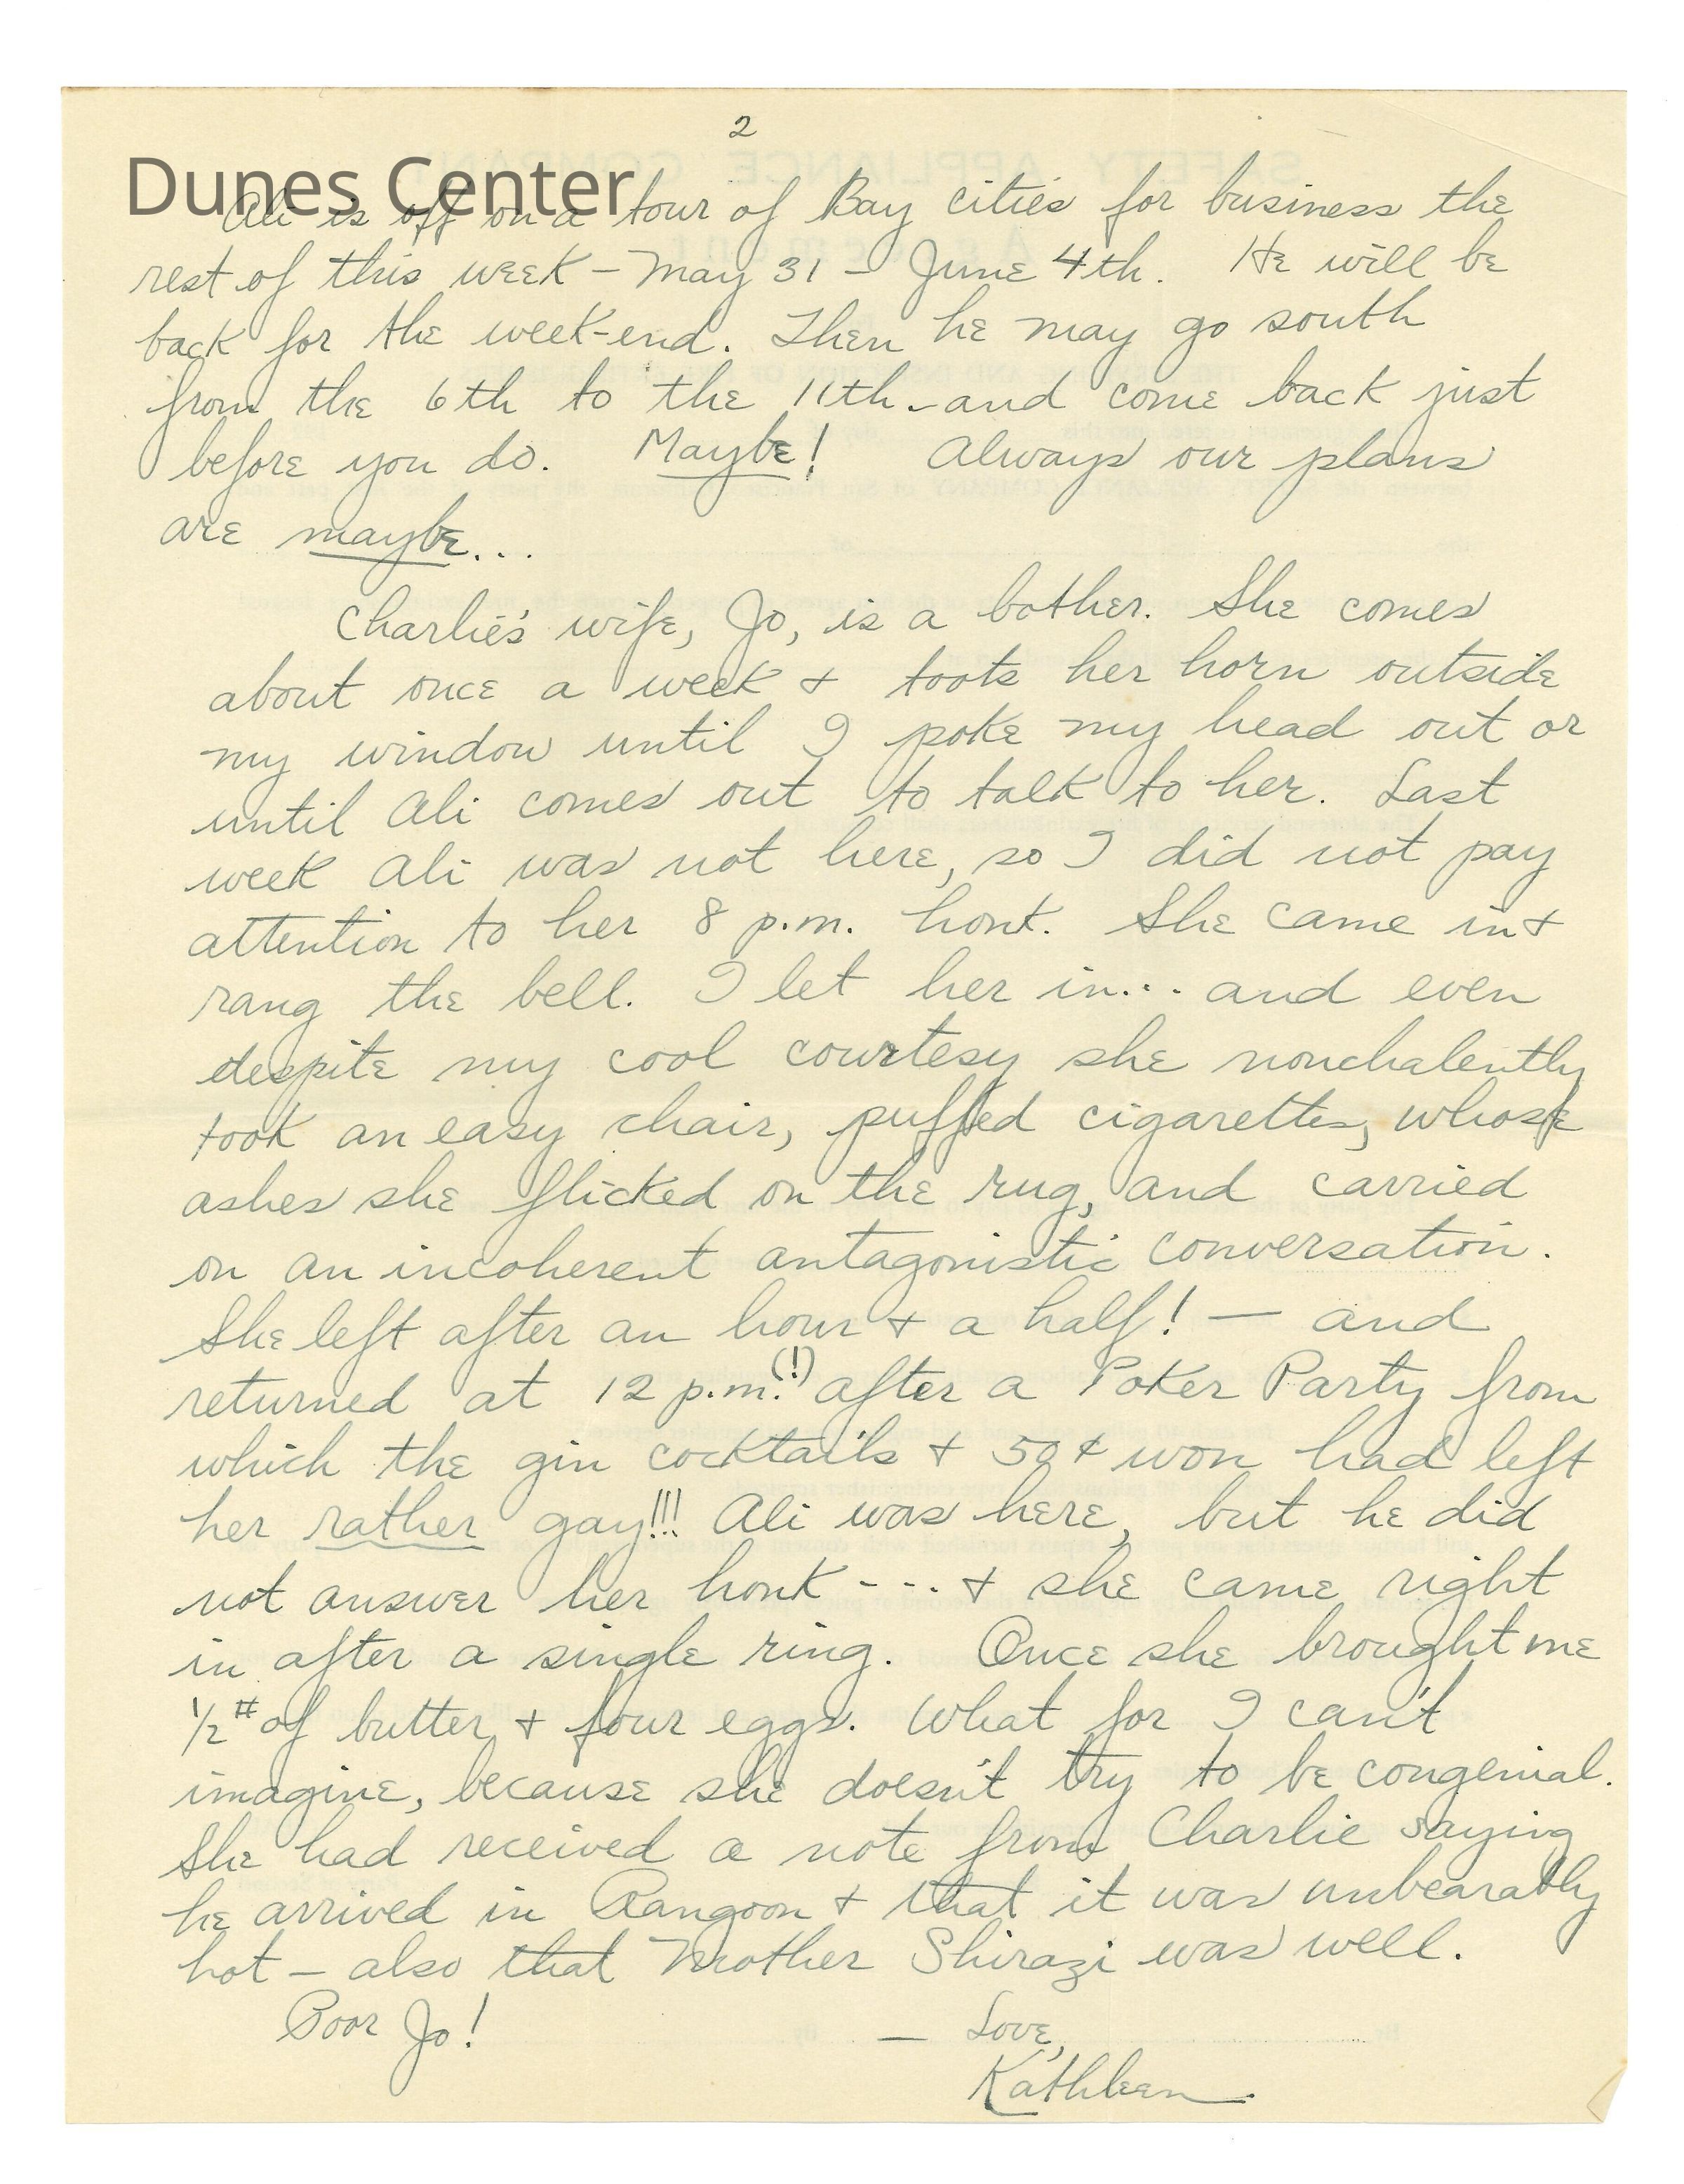 2
Dunes Center
Ali is off on a tour of Bay cities for business the
rest of this week – May 31 – June 4th. He will be
back for the week-end. Then he may go south
from the 6th to the 11th – and come back just
before you do. Maybe! Always our plans
are maybe...
Charlie's wife, Jo, is a bother. She comes
about once a week & toots her horn outside
my window until I poke my head out or
until Ali comes out to talk to her. Last
week Ali was not here, so I did not pay
attention to her 8 p.m. honk. She came in &
rang the bell. I let her in... and even
despite my cool courtesy she nonchalently
took an easy chair, puffed cigarettes, whose
ashes she flicked on the rug, and carried
on an incoherent antagonistic conversation.
She left after an hour & a half! — and
returned at 12 p.m.(!) after a Poker Party from
which the gin cocktails & 50¢ won had left
her rather gay!!! Ali was here, but he did
not answer her honk - - - . & she came right
in after a single ring. Once she brought me
1/2 # of butter & four eggs. What for I can't
imagine, because she doesn't try to be congenial.
She had received a note from Charlie saying
he arrived in Rangoon & that it was unbearably
hot – also that Mother Shirazi was well.
Poor Jo! — Love,
Kathleen